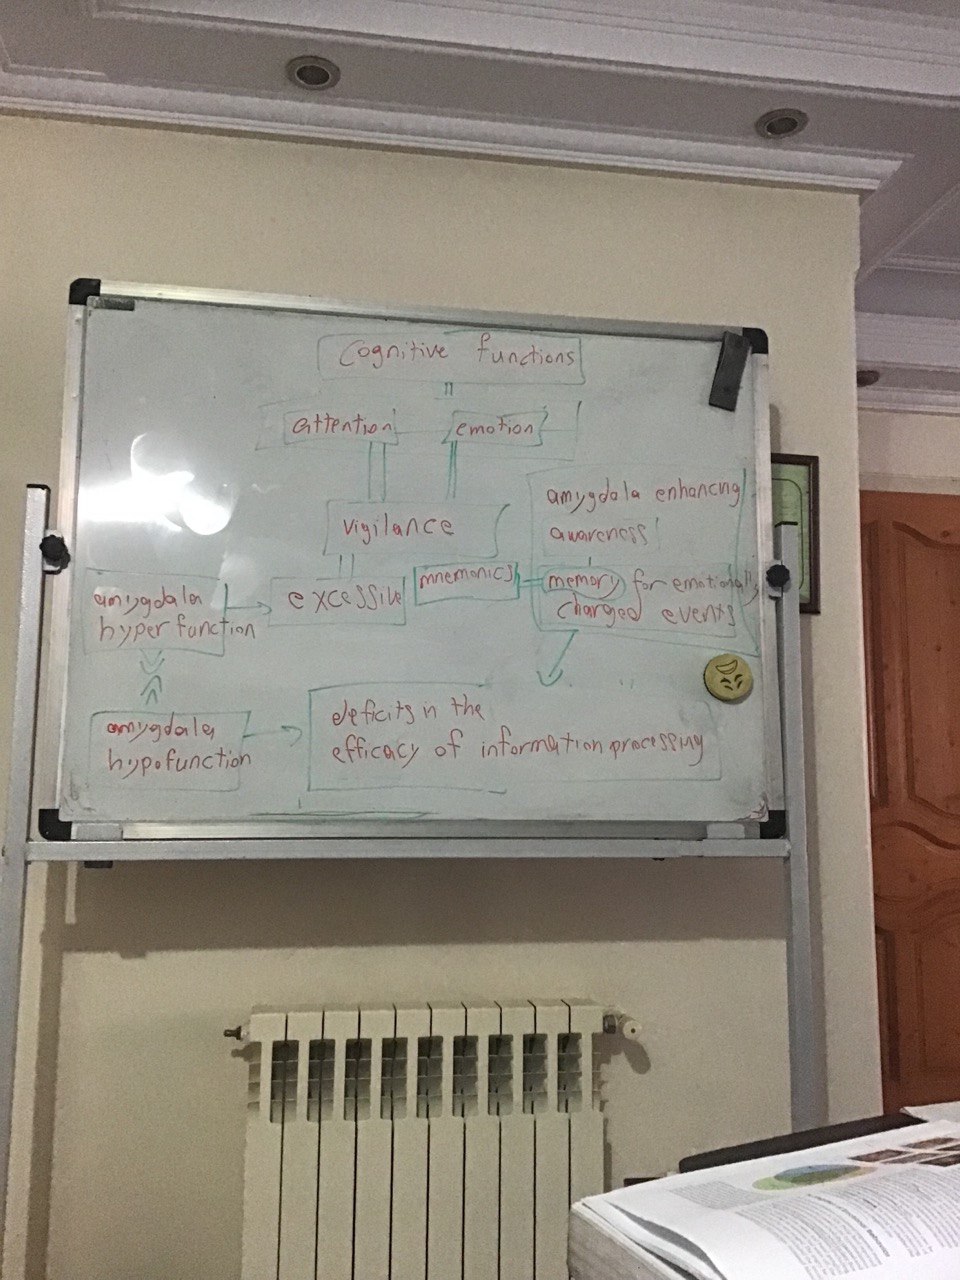 Cognitive functions
attention
emotion
vigilance
amygdala enhancing
awareness
amygdala
hyperfunction
excessive
mnemonics
memory for emotionally
charged events
amygdala
hypofunction
deficits in the
efficacy of information processing